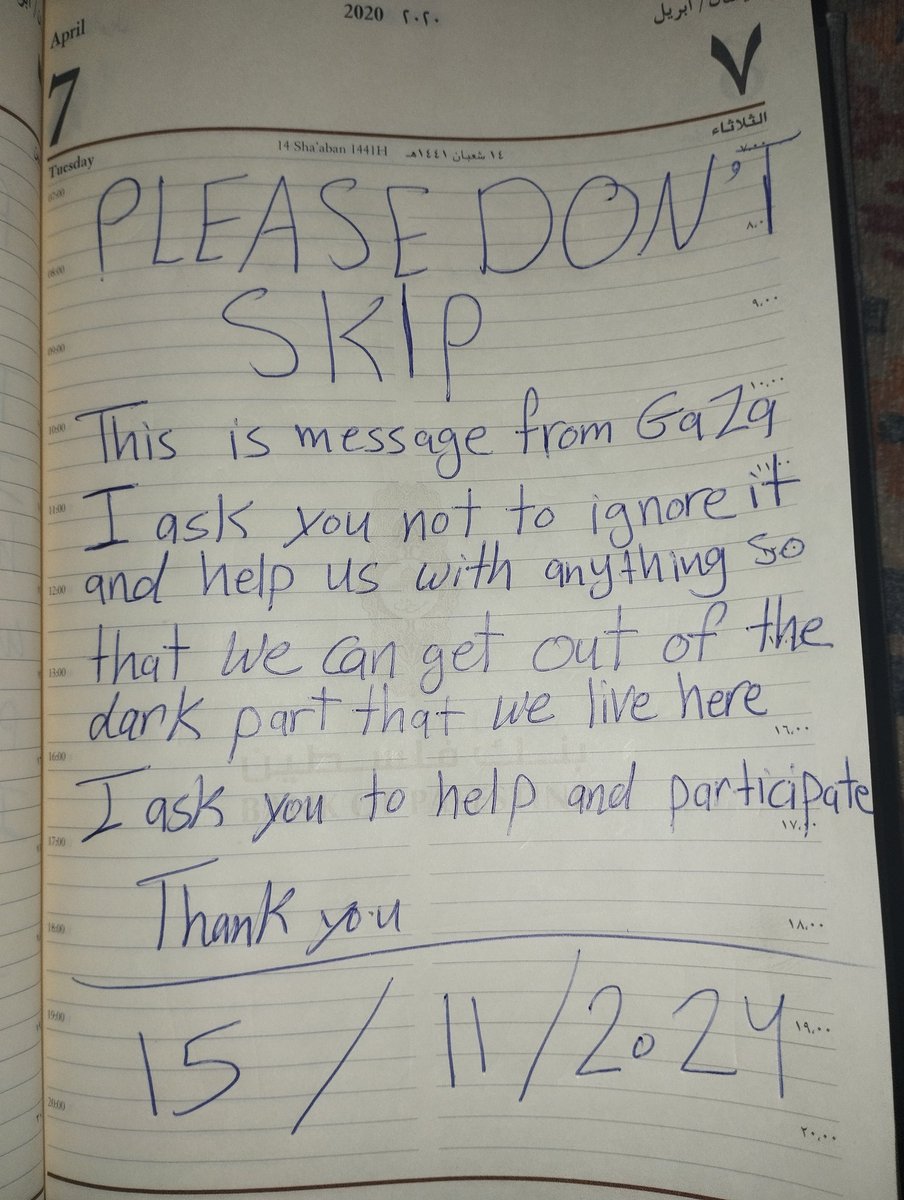 April
2020 ٢٠٢٠
7
٧
Tuesday
14 Sha'aban 1441H ١٤ شعبان ١٤٤١هـ
الثلاثاء
07:00
PLEASE DON'T
08:00
SKIP
٩,٠٠
09:00
١٠,٠٠
10:00
This is message from GaZa
11:00
I ask you not to ignore it
12:00
and help us with anything so
13:00
that we can get out of the
dark part that we live here
١٦,٠٠
16:00
I ask you to help and participate
١٧,٠٠
17:00
Thank you
١٨,٠٠
18:00
19:00
15/11/2024
١٩,٠٠
20:00
٢٠,٠٠